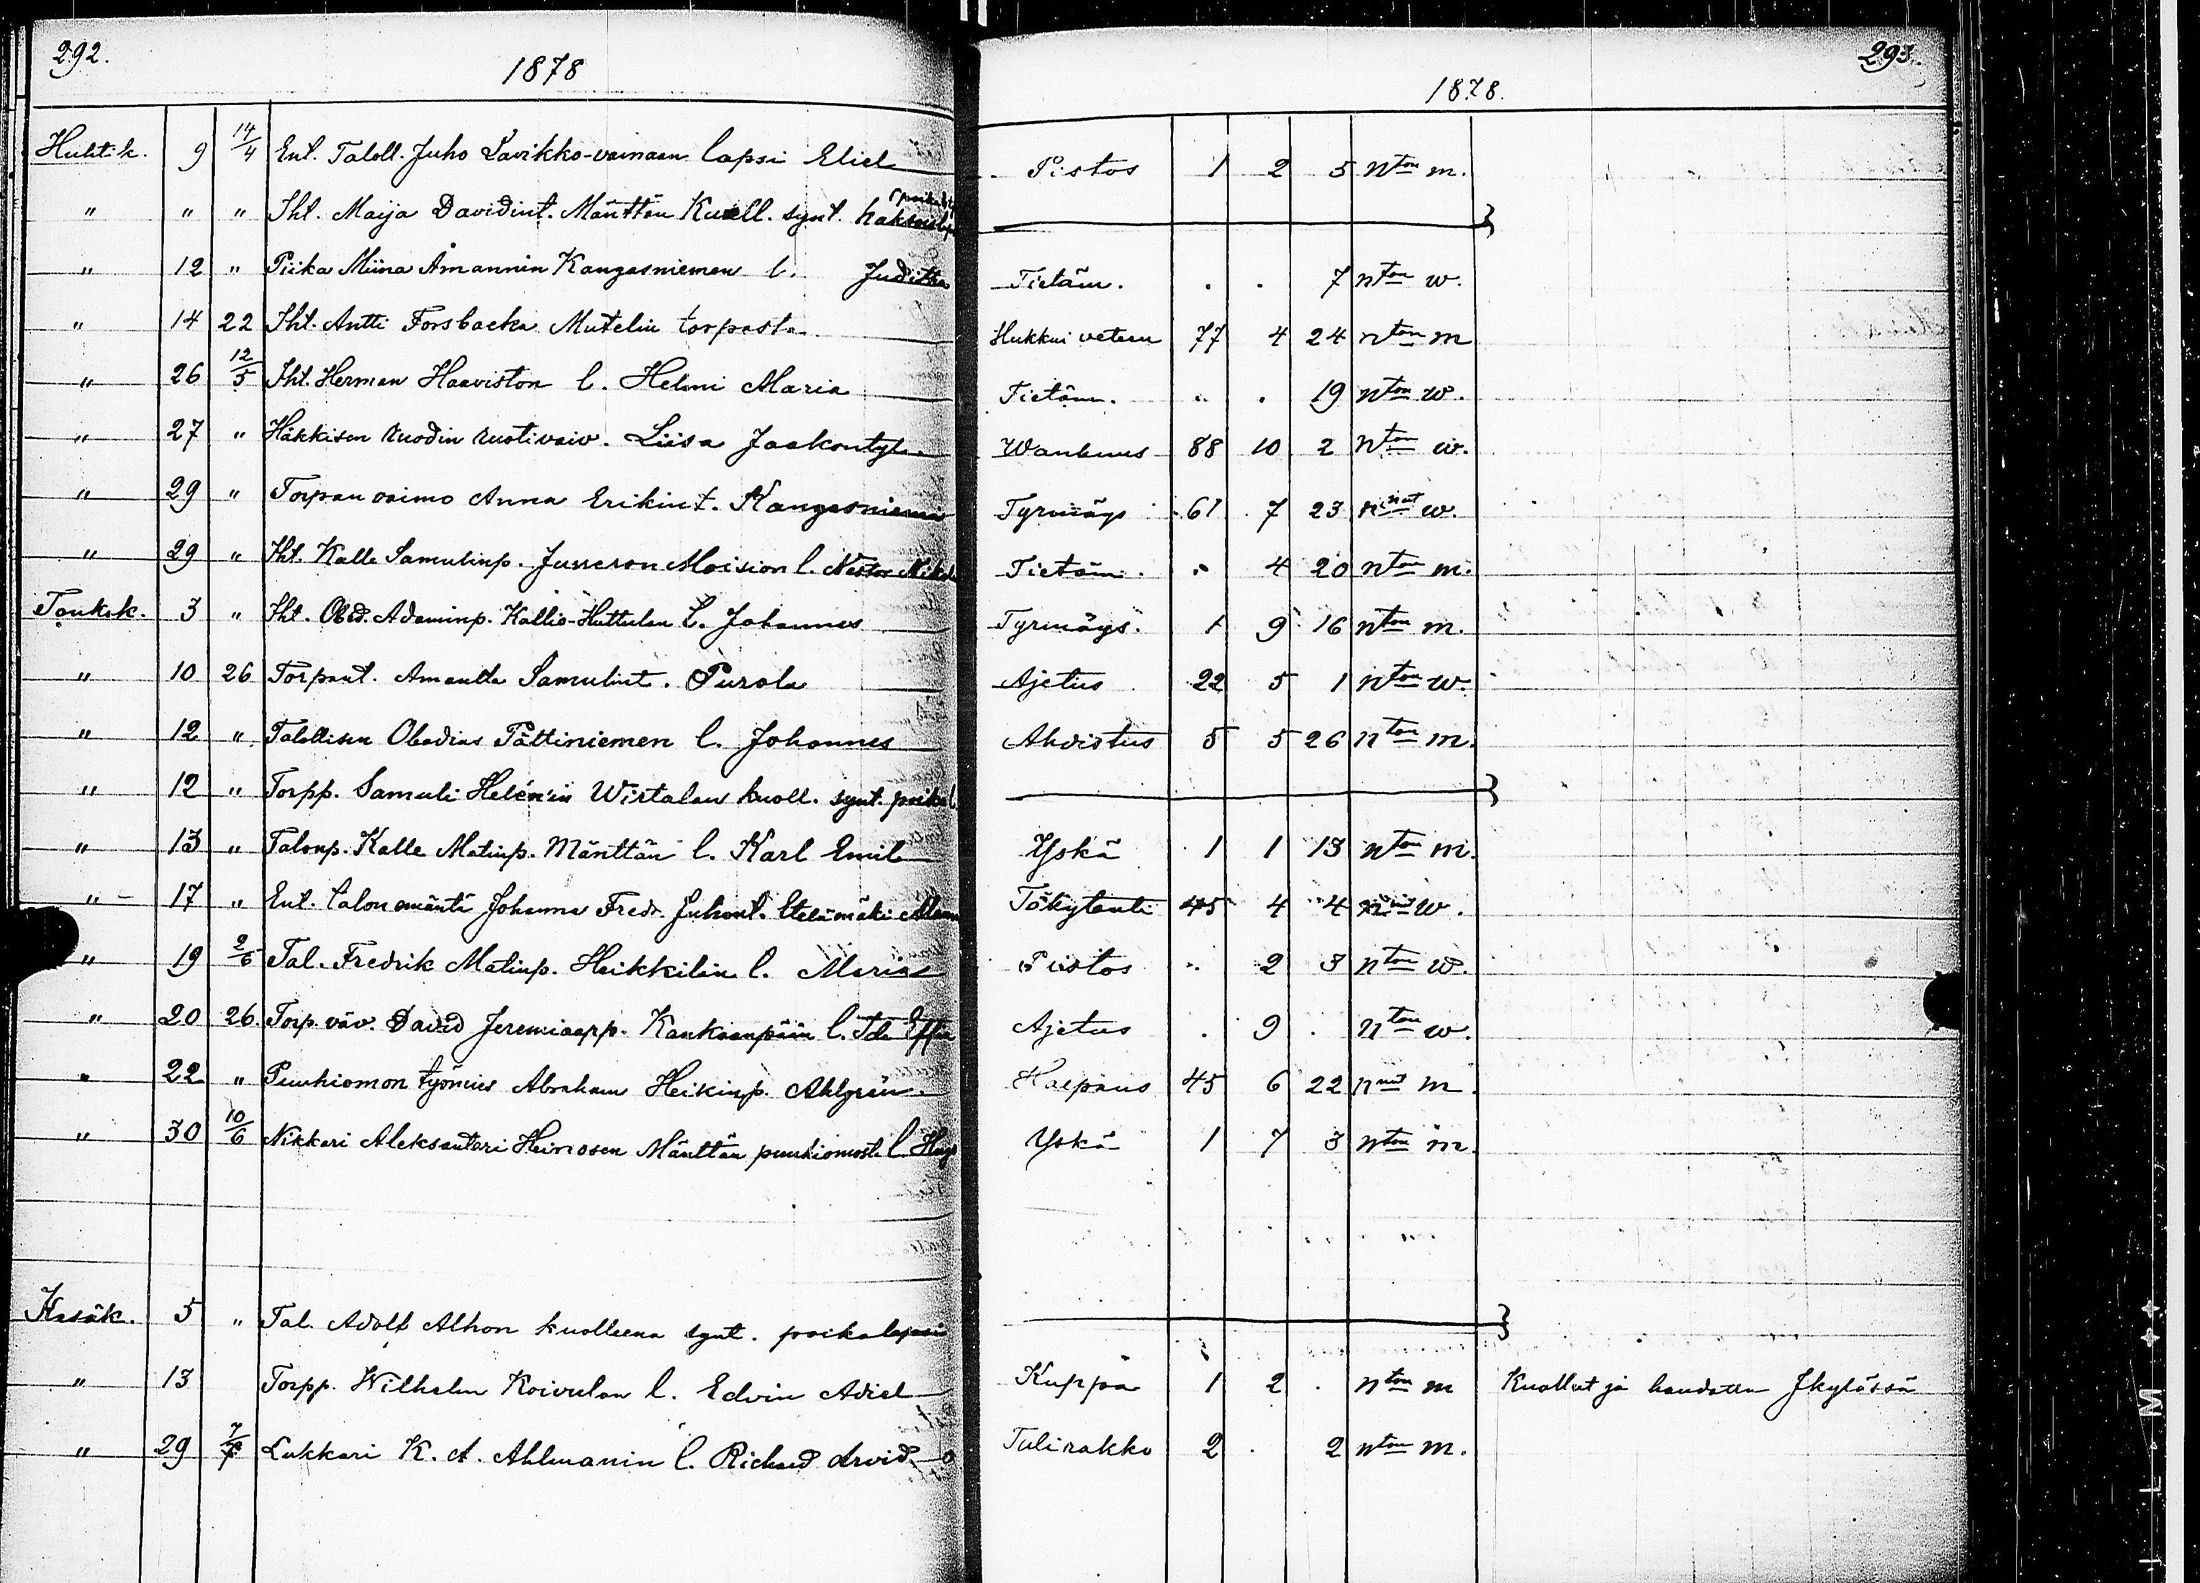 292.
1878
Huhtik. 9 14/4 Ent. Taloll. Juho Lavikko-vainaan lapsi Eliel
" " " Iht. Maija Davidint. Mänttän Kuoll. synt.
" 12 " Piika Miina Amannin Kangasniemen l. Juditha
" 14 22 Iht. Antti Forsbacka Mutelin torpasta
" 26 12/5 Iht. Herman Haaviston l. Helmi Maria
" 27 " Häkkisen Ruodin ruotivaiv. Liisa Jaakontyt.
" 29 " Torpan vaimo Anna Erikint. Kangasniemi
" 29 " Iht. Kalle Samulinp. Jusseron Moision l. Nestor
Toukok. 3 " Iht. Obed. Adaminp. Kallio-Huttulan l. Johannes
" 10 26 Torpant. Amanda Samulint. Purola
" 12 " Talollisen Obedias Pättiniemen l. Johannes
" 12 " Torpp. Samuli Helén'in Wirtalan kuoll. synt. poikal
" 13 " Talonp. Kalle Matinp. Mänttän l. Karl Emil
" 17 " Ent. talon emäntä Johanna Fredr. Juhont. Etelämäki
" 19 2/6 Tal. Fredrik Matinp. Heikkilän l. Maria
" 20 26. Torp. väv. David Jeremiaanp. Kankaanpään l. Ida
" 22 " Puuhiomon työmies Abraham Heikinp. Ahlgrén
" 30 10/6 Nikkari Aleksanteri Heinosen Mänttän puuhiomosta l.
Kesäk. 5 " Tal. Adolf Alhon kuolleena synt. poikalapsi
" 13 Torpp. Wilhelm Koivulan l. Edvin Adiel
" 29 7/7 Lukkari K. A. Ahlmanin l. Richard Arvid
293.
1878.
Pistos 1 2 5 nton m.
Tietäm. . . 7 nton w.
Hukkui veteen 77 4 24 nton m
Tietäm. " . 19 nton w.
Wanhuus 88 10 2 nton w.
Tyrmäys 61 7 23 nnut w.
Tietäm. " 4 20 nton m.
Tyrmäys. 1 9 16 nton m.
Ajetus 22 5 1 nton w.
Ahdistus 5 5 26 nton m.
Yskä 1 1 13 nton m.
Tökytauti 45 4 4 nnut w.
Pistos " 2 3 nton w.
Ajetus . 9 . nton w.
Halpaus 45 6 22 nnut m.
Yskä 1 7 3 nton m.
Kuppa 1 2 . nton m Kuollut ja haudattu Jkylässä
Tulirakko 2 . 2 nton m.